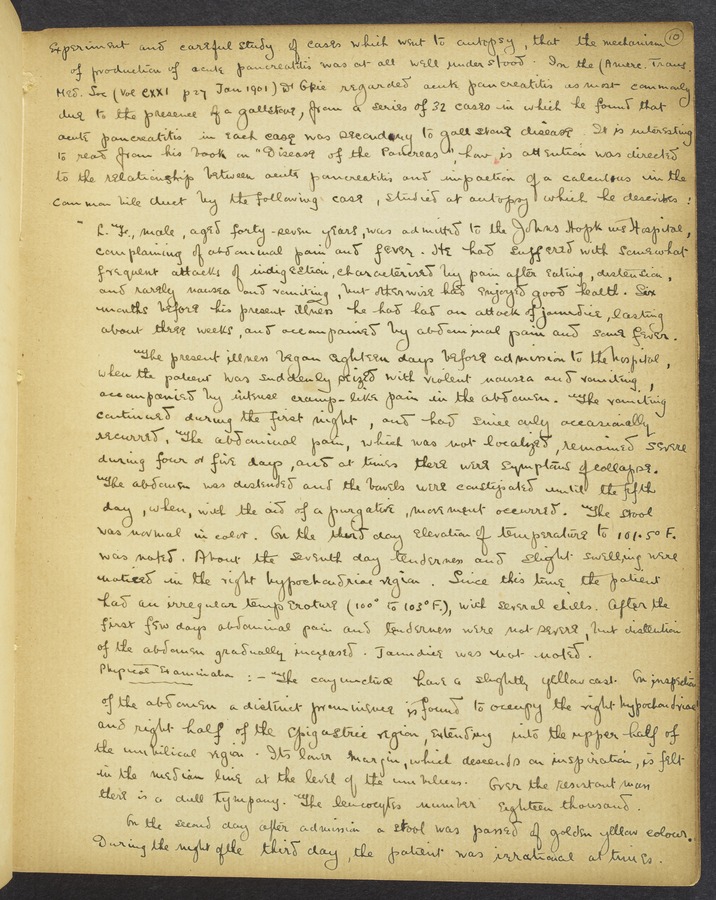 10
Experiment and careful study of cases which went to autopsy, that the mechanism
of production of acute pancreatitis was at all well understood. In the (Americ. Trans.
Med. Soc (Vol CXXI p27 Jan 1901) Dr Opie regarded acute pancreatitis as most commonly
due to the presence of a gallstone, from a series of 32 cases in which he found that
acute pancreatitis in each case was secondary to gall stone disease. It is interesting
to read from his book on "Disease of the Pancreas", how is attention was directed
to the relationship between acute pancreatitis and impaction of a calculous in the
common bile duct by the following case, studied at autopsy which he describes:
"L. F., male, aged forty-seven years, was admitted to the Johns Hopkins Hospital,
complaining of abdominal pain and fever. He had suffered with somewhat
frequent attacks of indigestion, characterised by pain after eating, distension,
and rarely nausea and vomiting, but otherwise had enjoyed good health. Six
months before his present illness he had had an attack of jaundice, lasting
about three weeks, and accompanied by abdominal pain and some fever.
The present illness began eighteen days before admission to the hospital,
when the patient was suddenly seized with violent nausea and vomiting,
accompanied by intense cramp-like pain in the abdomen. The vomiting
continued during the first night, and had since only occasionally
recurred. The abdominal pain, which was not localized, remained severe
during four or five days, and at times there were symptoms of collapse.
The abdomen was distended and the bowels were constipated until the fifth
day, when, with the aid of a purgative, movement occurred. The stool
was normal in color. On the third day elevation of temperature to 101.5° F.
was noted. About the seventh day tenderness and slight swelling were
noticed in the right hypochondriac region. Since this time the patient
had an irregular temperature (100° to 103° F.), with several chills. After the
first few days abdominal pain and tenderness were not severe, but distention
of the abdomen gradually increased. Jaundice was not noted.
Physical Examination :- The conjunctivæ have a slightly yellow cast. On inspection
of the abdomen a distinct prominence is found to occupy the right hypochondriac
and right half of the epigastric region extending into the upper half of
the umbilical region. Its lower margin, which descends on inspiration, is felt
in the median line at the level of the umbilicus. Over the resistant mass
there is a dull tympany. The leucocytes number eighteen thousand.
On the second day after admission a stool was passed of golden yellow colour.
During the night of the third day, the patient was irrational at times.